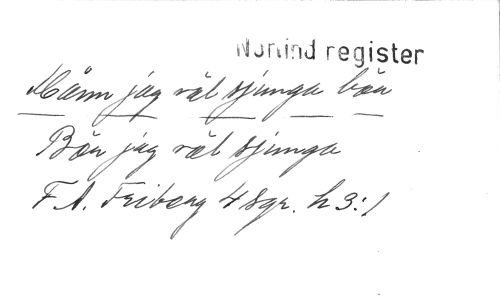 Norlind register
Månn jag väl sjunga bön
Bön jag väl sjunga
F. A. Friberg 4 Sgr. h 3:1